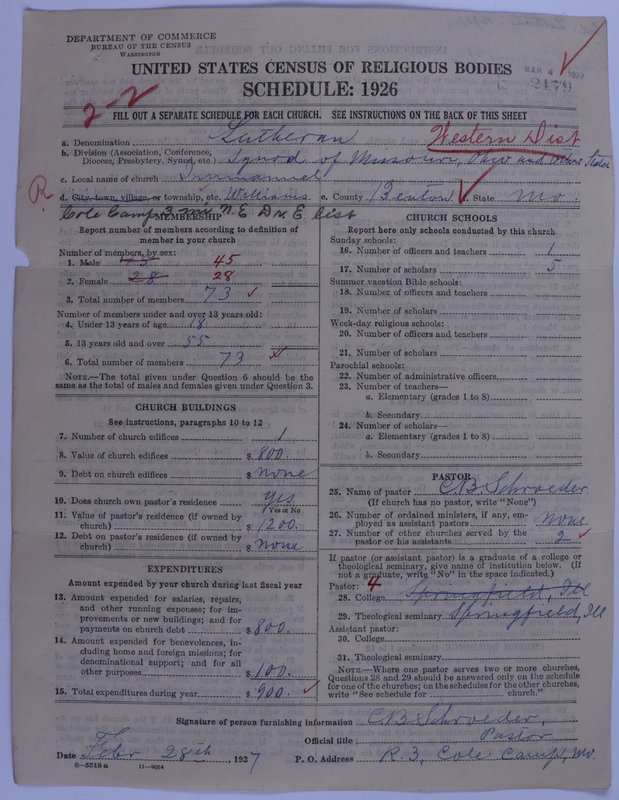 DEPARTMENT OF COMMERCE
BUREAU OF THE CENSUS
WASHINGTON
MAR 4 1927
2479
UNITED STATES CENSUS OF RELIGIOUS BODIES
SCHEDULE: 1926
2-2
FILL OUT A SEPARATE SCHEDULE FOR EACH CHURCH. SEE INSTRUCTIONS ON THE BACK OF THIS SHEET
a. Denomination Lutheran Western Dist
b. Division (Association, Conference, Diocese, Presbytery, Synod, etc.) Synod of Missouri, Ohio and other States
c. Local name of church Immanuel
R d. City, town, village, or township, etc. Williams e. County Benton f. State Mo.
Cole Camp 3 mi. N.E. D N. E dist
MEMBERSHIP
Report number of members according to definition of member in your church
Number of members, by sex:
1. Male 45
2. Female 28 28
3. Total number of members 73
Number of members under and over 13 years old:
4. Under 13 years of age 18
5. 13 years old and over 55
6. Total number of members 73
NOTE.—The total given under Question 6 should be the same as the total of males and females given under Question 3.
CHURCH BUILDINGS
See instructions, paragraphs 10 to 12
7. Number of church edifices 1
8. Value of church edifices $ 800.
9. Debt on church edifices $ none
10. Does church own pastor's residence yes
Yes or No
11. Value of pastor's residence (if owned by church) $ 1200.
12. Debt on pastor's residence (if owned by church) $ none
EXPENDITURES
Amount expended by your church during last fiscal year
13. Amount expended for salaries, repairs, and other running expenses; for improvements or new buildings; and for payments on church debt $ 800.
14. Amount expended for benevolences, including home and foreign missions; for denominational support; and for all other purposes $ 100.
15. Total expenditures during year $ 900.
CHURCH SCHOOLS
Report here only schools conducted by this church
Sunday schools:
16. Number of officers and teachers 1
17. Number of scholars 5
Summer vacation Bible schools:
18. Number of officers and teachers
19. Number of scholars
Week-day religious schools:
20. Number of officers and teachers
21. Number of scholars
Parochial schools:
22. Number of administrative officers
23. Number of teachers—
a. Elementary (grades 1 to 8)
b. Secondary
24. Number of scholars—
a. Elementary (grades 1 to 8)
b. Secondary
PASTOR
25. Name of pastor C B Schroeder
(If church has no pastor, write "None")
26. Number of ordained ministers, if any, employed as assistant pastors none
27. Number of other churches served by the pastor or his assistants 2
If pastor (or assistant pastor) is a graduate of a college or theological seminary, give name of institution below. (If not a graduate, write "No" in the space indicated.)
Pastor: 4
28. College Springfield, Ill
29. Theological seminary Springfield, Ill
Assistant pastor:
30. College
31. Theological seminary
NOTE.—Where one pastor serves two or more churches, Questions 28 and 29 should be answered only on the schedule for one of the churches; on the schedules for the other churches, write "See schedule for church."
Signature of person furnishing information C B Schroeder,
Official title Pastor
Date Febr 28th, 1927 P. O. Address R. 3, Cole Camp, Mo.
8-5518a 11-9054